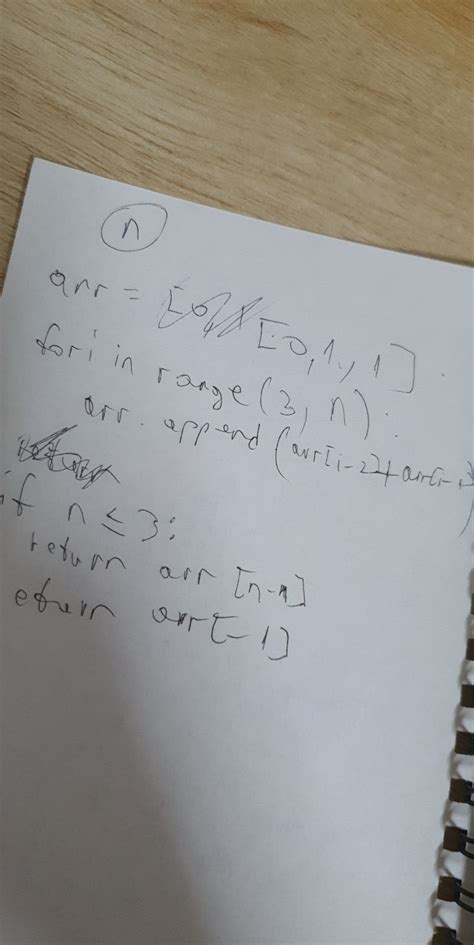 n
arr = [0,1,1]
for i in range(3, n):
arr.append(arr[i-2]+arr[i-
if n ≤ 3:
return arr [n-1]
eturn arr[-1]